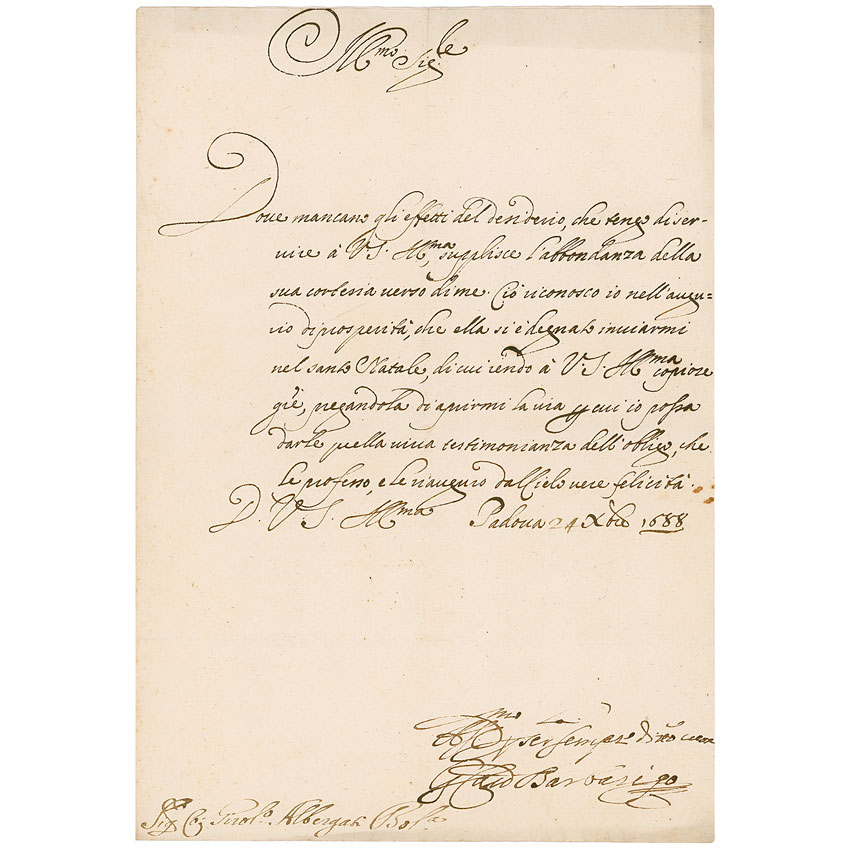 Ill.mo Sig.re
Dove mancano gli effetti del desiderio, che tengo di ser-
uire à V.S. Ill.ma, supplisce l'abbondanza della
sua cortesia verso di me. Ciò riconosco io nell'augu-
rio di prosperità, che ella si è degnata inuiarmi
nel santo Natale, di cui rendo à V.S. Ill.ma copiose
gr̃e, pregandola di aprirmi la via p cui io possa
darle quella viva testimonianza dell'obligo, che
le professo, e le riauguro dal Cielo vere felicità.
D. V. S. Ill.ma Padoua 24 Xbre 1688
Aff.mo per ser sempre
G Card Barbarigo
Sig.r Co: Girol.o Albergati Bol.a